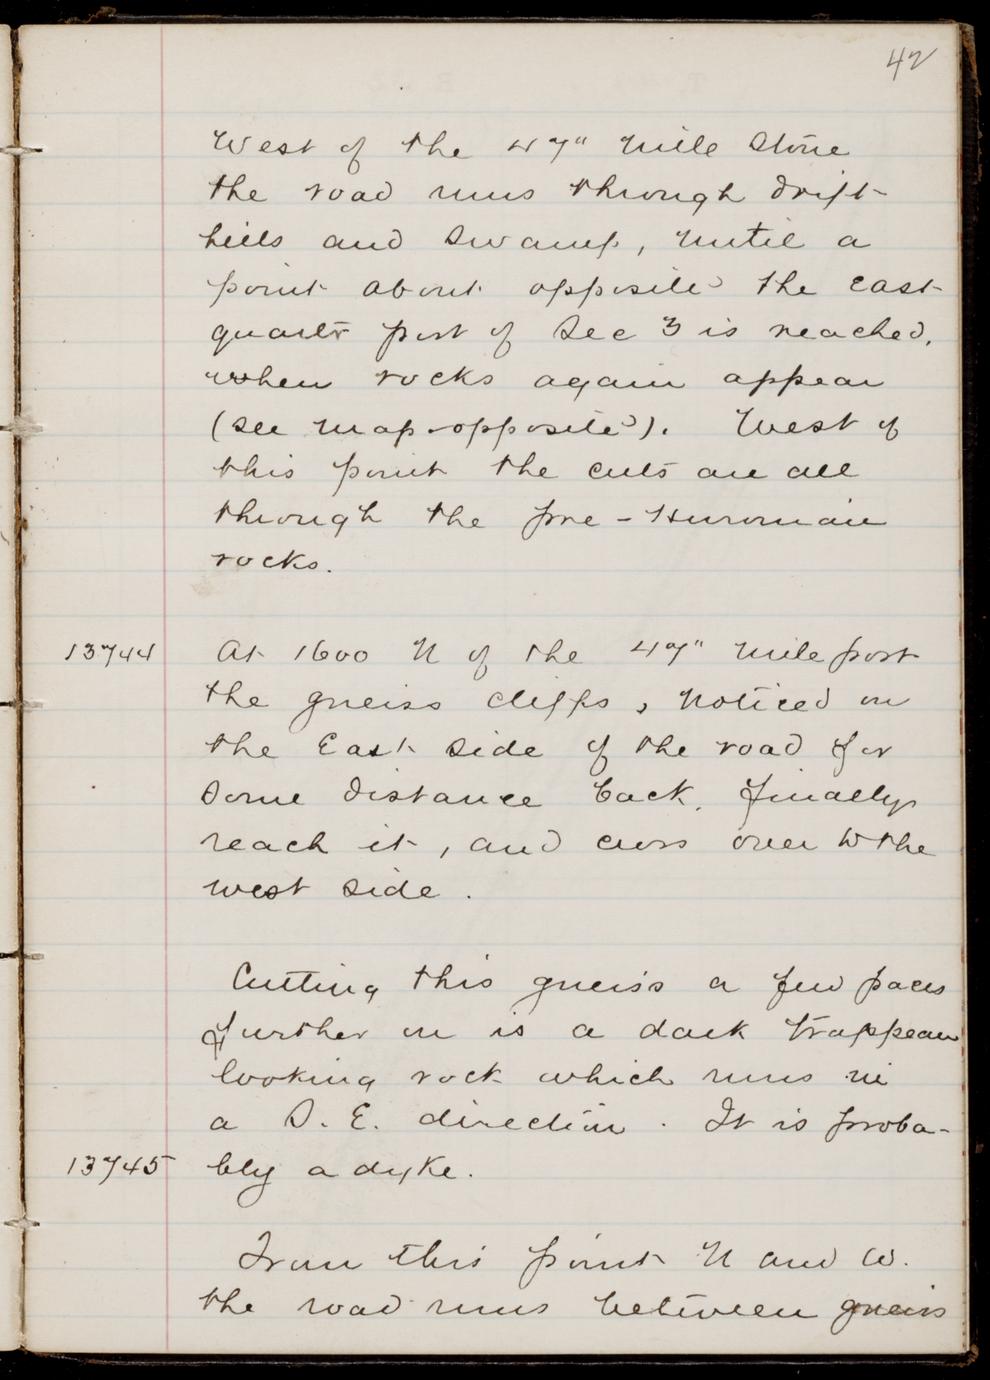 42
West of the 47" mile stone
the road runs through drift
hills and swamp, until a
point about opposite the East
quarter post of Sec 3 is reached,
when rocks again appear
(see map opposite). West of
this point the cuts are all
through the pre-Huronian
rocks.
13744 At 1600 N of the 47" mile post
the gneiss cliffs, noticed on
the East side of the road for
some distance back, finally
reach it, and cross over to the
west side.
Cutting this gneiss a few paces
further on is a dark trappean
looking rock which runs in
a S. E. direction. It is proba-
13745 bly a dyke.
From this point N and W.
the road runs between gneiss